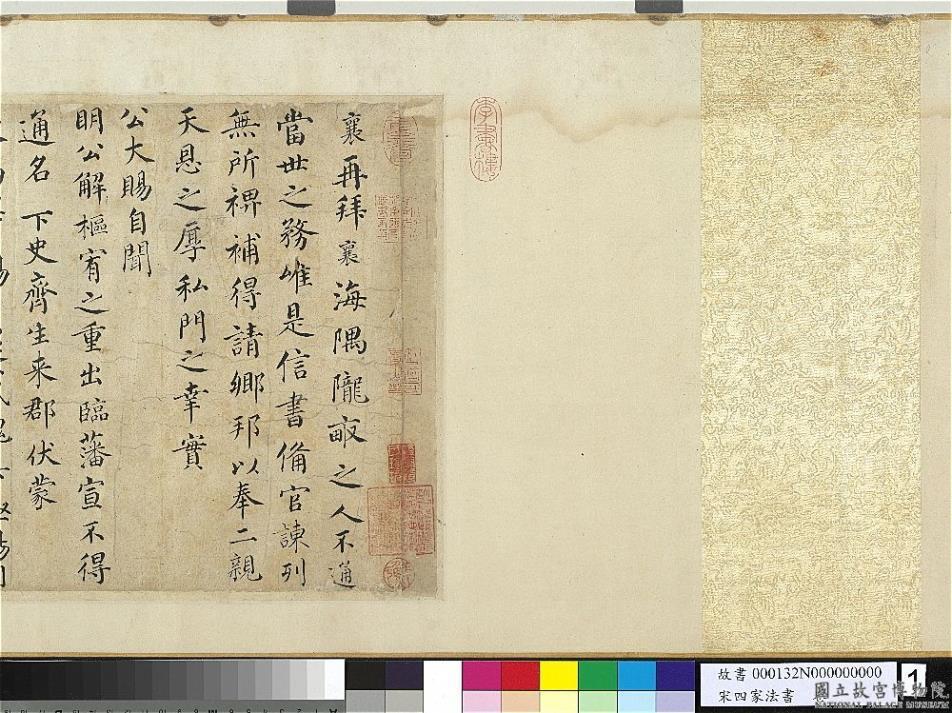 襄再拜襄海隅隴畝之人不通
當世之務唯是信書備官諫列
無所裨補得請鄉邦以奉二親
天恩之厚私門之幸實
公大賜自聞
明公解樞宥之重出臨藩宣不得
通名下史齊生來郡伏蒙
故書 000132N000000000
宋四家法書
1
國立故宮博物院
NATIONAL PALACE MUSEUM